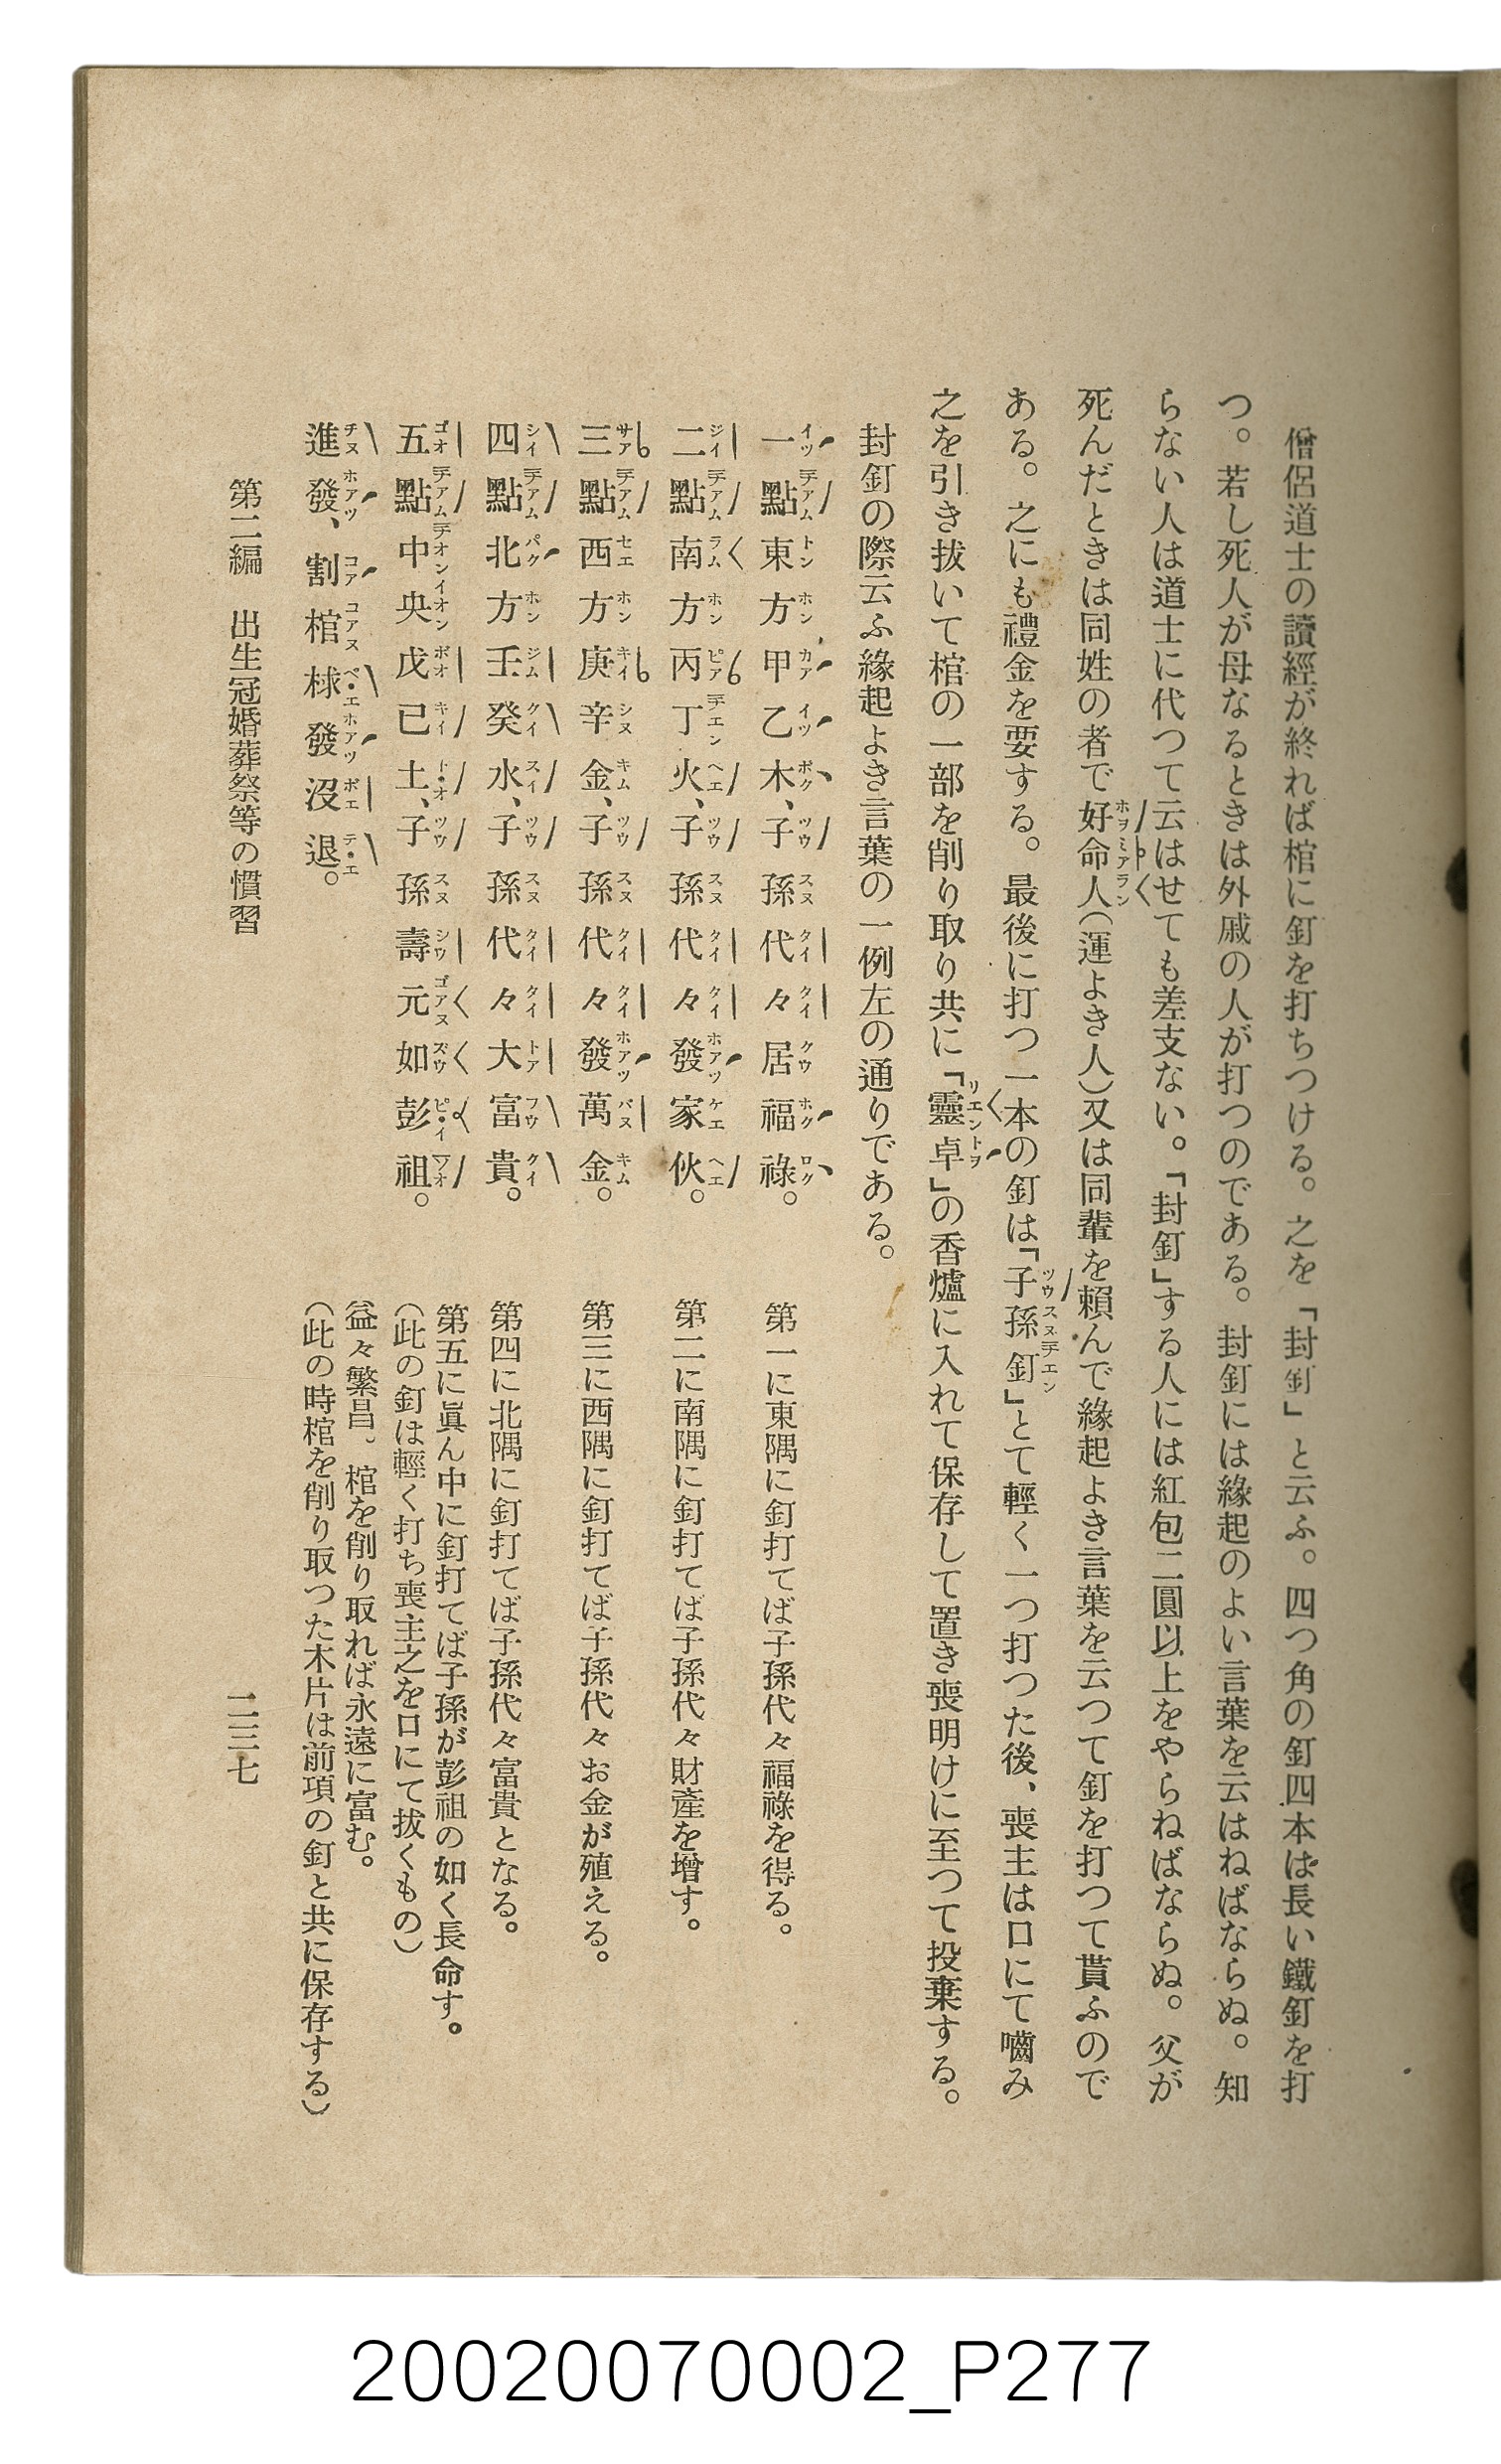 僧侶道士の讀經が終れば棺に釘を打ちつける。之を「封釘」と云ふ。四つ角の釘四本は長い鐵釘を打
つ。若し死人が母なるときは外戚の人が打つのである。封釘には緣起のよい言葉を云はねばならぬ。知
らない人は道士に代つて云はせても差支ない。「封釘」する人には紅包二圓以上をやらねばならぬ。父が
死んだときは同姓の者で好命人（運よき人）又は同輩を賴んで緣起よき言葉を云つて釘を打つて貰ふので
ある。之にも禮金を要する。最後に打つ一本の釘は「子孫釘」とて輕く一つ打つた後、喪主は口にて嚙み
之を引き拔いて棺の一部を削り取り共に「靈卓」の香爐に入れて保存して置き喪明けに至つて投棄する。
封釘の際云ふ緣起よき言葉の一例左の通りである。
一點東方甲乙木、子孫代々居福祿。　第一に東隅に釘打てば子孫代々福祿を得る。
二點南方丙丁火、子孫代々發家伙。　第二に南隅に釘打てば子孫代々財產を增す。
三點西方庚辛金、子孫代々發萬金。　第三に西隅に釘打てば子孫代々お金が殖える。
四點北方壬癸水、子孫代々大富貴。　第四に北隅に釘打てば子孫代々富貴となる。
五點中央戊己土、子孫壽元如彭祖。　第五に眞ん中に釘打てば子孫が彭祖の如く長命す。
（此の釘は輕く打ち喪主之を口にて拔くもの）
進發、割棺栐發沒退。　益々繁昌。棺を削り取れば永遠に富む。
（此の時棺を削り取つた木片は前項の釘と共に保存する）
第二編　出生冠婚葬祭等の慣習
二三七
20020070002_P277